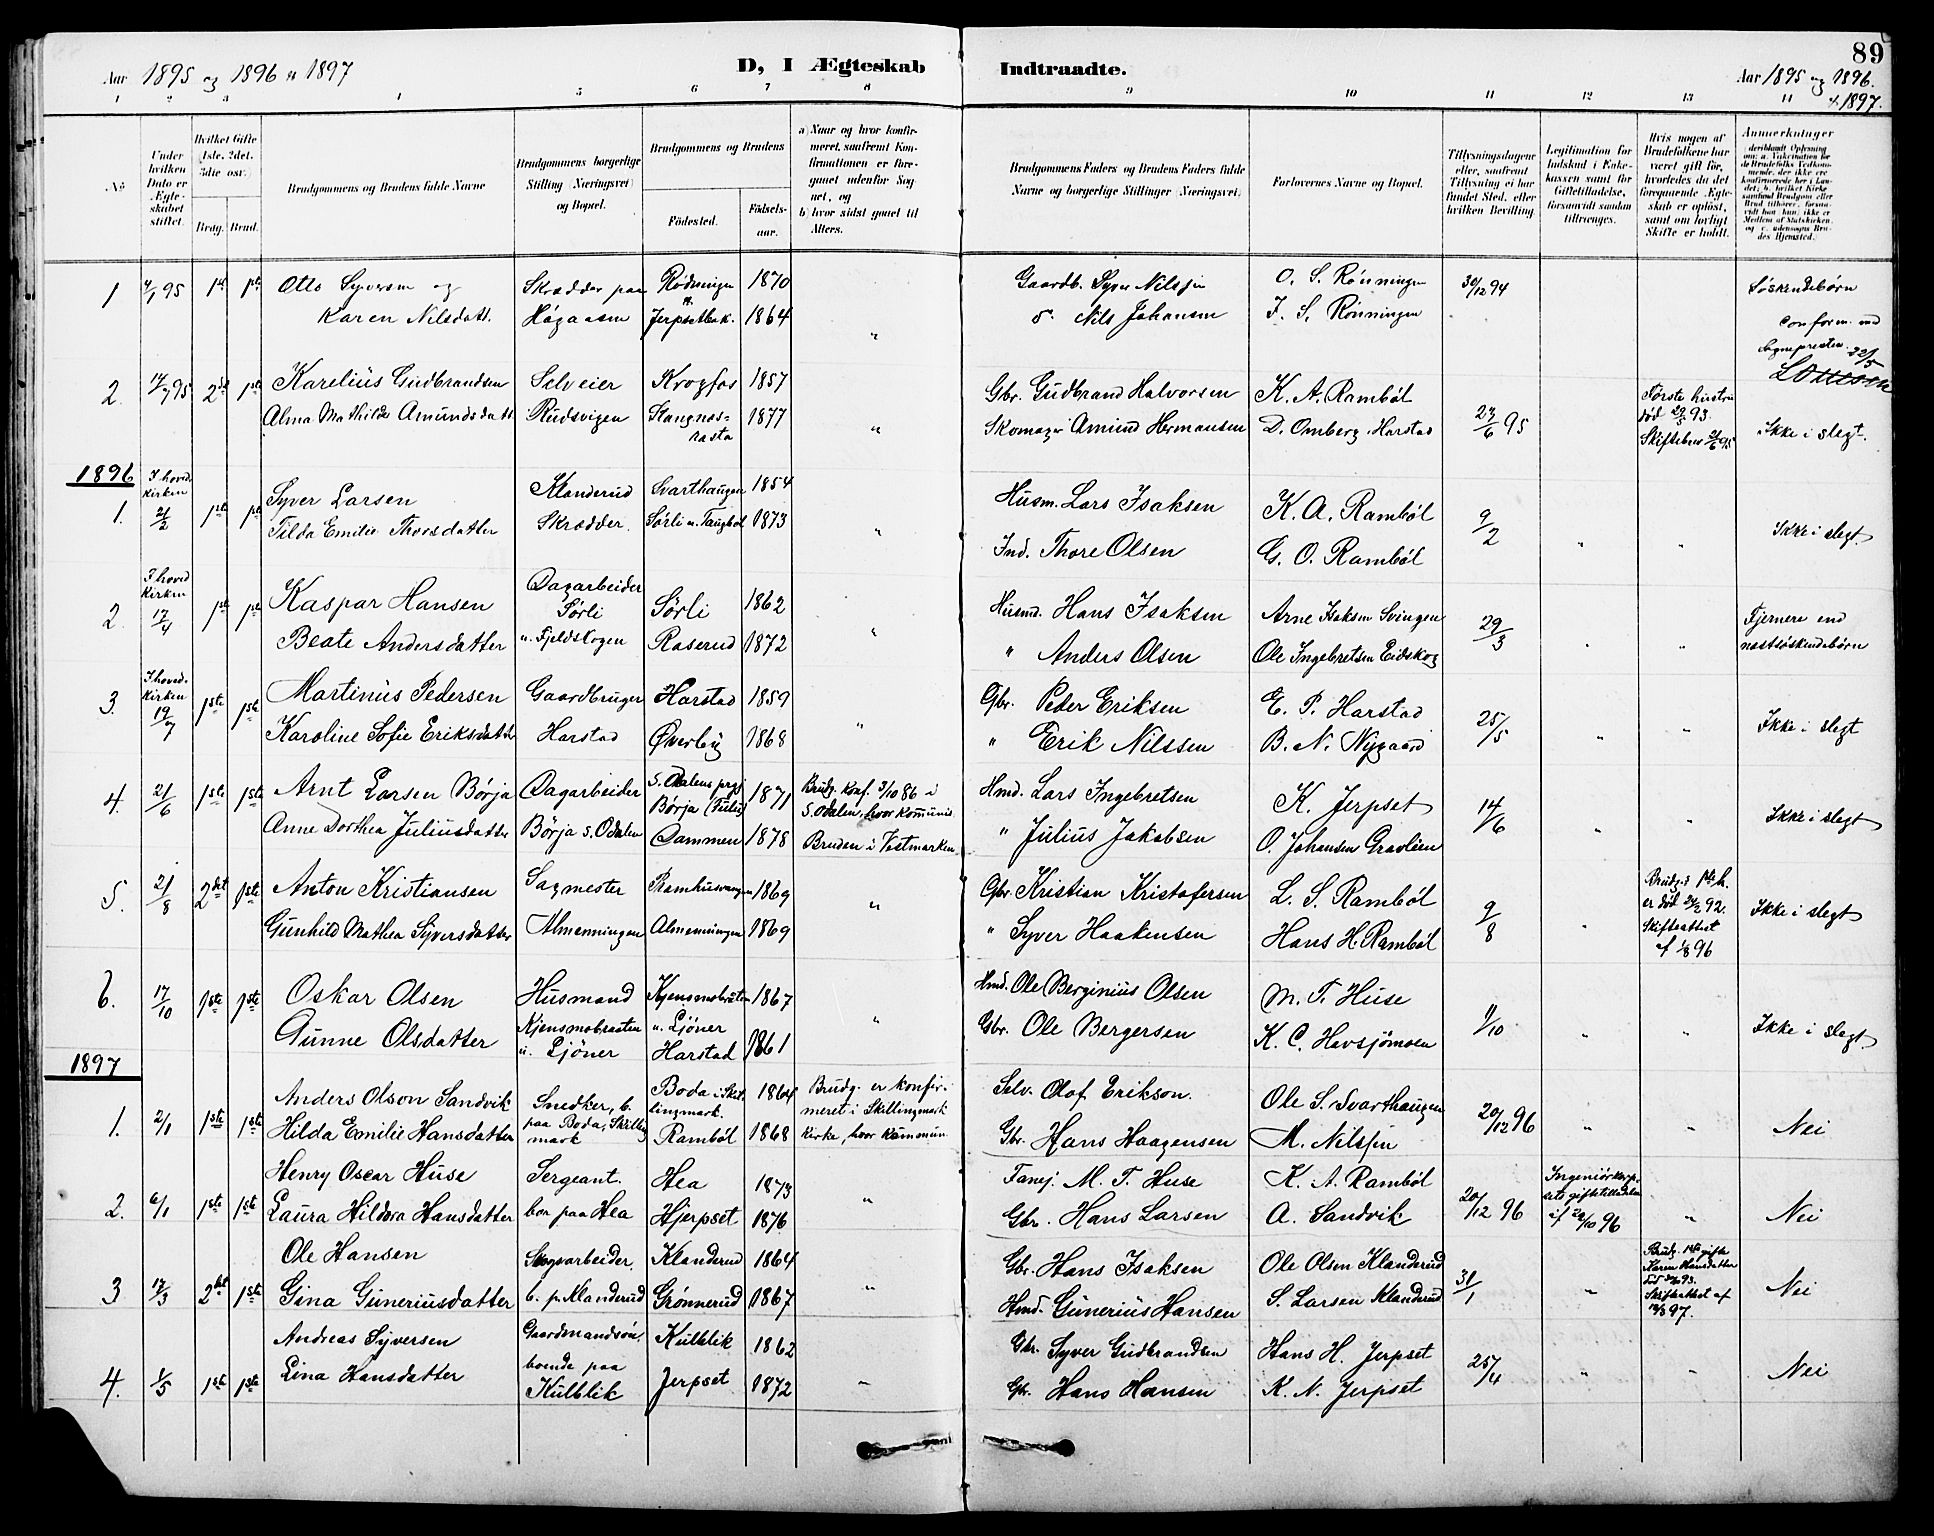 89
Aar 1895 og 1896 & 1897
D, I Ægteskab Indtraadte.
Aar 1895 og 1896.
& 1897.
1 2 3 4 5 6 7 8 9 10 11 12 13 14
No
Under hvilken Dato er Ægteskabet stiftet.
Hvilket Gifte (1ste, 2det, 3die osv.)
Brdg. Brud.
Brudgommens og Brudens fulde Navne
Brudgommens borgerlige Stilling (Næringsvei) og Bopæl.
Brudgommens og Brudens
Fødested.
Fødselsaar.
a) Naar og hvor konfirmeret, saafremt Konfirmationen er foregaaet udenfor Sognet, og
b) hvor sidst gaaet til Alters.
Brudgommens Faders og Brudens Faders fulde Navne og borgerlige Stillinger (Næringsvei).
Forlovernes Navne og Bopæl.
Tillysningsdagene eller, saafremt Tillysning ei har fundet Sted, efter hvilken Bevilling.
Legitimation for Indskud i Enkekassen samt for Giftetilladelse, forsaavidt saadan tiltrænges.
Hvis nogen af Brudefolkene har været gift før, hvorledes da det foregaaende Ægteskab er opløst, samt om lovligt Skifte er holdt.
Anmerkninger
1 4/1 95 1st 1ste Otto Syversen og Skrædder paa Rødningen 1870 Gaardb. Syver Nilssen O. S. Rønningen 30/12 94 Søskendebørn
Karen Nilsdatt. Høgaasen Jerpsetbak. 1864 " Nils Johansen J. S. Rønningen
Conform. med
Sognepresten
2. 14/7 95 2det 1ste Karelius Gudbrandsen Selveier Krogfos 1857 Gbr. Gudbrand Halvorsen K. A. Rambøl 23/6 95 Første hustru
Alma Mathilde Amundsdatt. Rudsvigen Stangnæsrasta 1877 " Skomager Amund Hermansen D. Omberg Harstad død 93. Skiftebrev 95 Ikke i slegt.
1896
1. I hovedkirken 21/2 1ste 1ste Syver Larsen Klanderud Svarthaugen 1854 Husm. Lars Isaksen K. A. Rambøl 9/2 " "
Tilda Emilie Thorsdatter Skrædder. Sørli u. Taugbøl 1873 " Ind. Thore Olsen G. O. Rambøl Ikke i slegt
2. I hovedkirken 17/4 1ste 1ste Kaspar Hansen Dagarbeider Sørli Sørli 1862 Husmd. Hans Isaksen Arne Isaksen Svingen 29/3 " " Fjernere end
Beate Andersdatter u. Fjeldskogen Raserud 1872 " " Anders Olsen Ole Ingebretsen Eidskog næstsøskendebørn
3. I hovedkirken 19/7 1ste 1ste Martinus Pedersen Gaardbruger Harstad 1859 Gbr. Peder Eriksen E. P. Harstad 25/5 " " Ikke i slegt
Karoline Sofie Eriksdatter Harstad Øverby 1868 " " Erik Nilssen B. N. Nygaard
4. 21/6 1ste 1ste Arnt Larsen Børja Dagarbeider S. Odalens prgj. Børja (Fulu) 1871 Brudg. konf. 3/10 86 i Hmd. Lars Ingebretsen K. Jerpset 14/6 " " Ikke i slegt
Anne Dorthea Juliusdatter Børja S. Odalen Dammen 1878 S. Odalen, hvor kommunis. Bruden i Vestmarken " Julius Jakobsen O. Johansen Gravlien
5. 21/8 2det 1ste Anton Kristiansen Sagmester Pramhusvangen 1869 Gbr. Kristian Kristofersen L. S. Rambøl 9/8 " Brudg.s 1ste h. er død 92. Ikke i slegt
Gunhild Mathea Syversdatter Almenningen Almenningen 1869 " " Syver Haakensen Hans H. Rambøl Skifteattest af 1/8 96
6. 17/10 1ste 1ste Oskar Olsen Husmand Kjensmobråten 1867 Hmd. Ole Berginius Olsen M. T. Huse 4/10 " " Ikke i slegt
Gunne Olsdatter Kjensmobraaten u. Ljöner u. Ljöner Harstad 1861 " Gbr. Ole Bergersen K. C. Havsjømoen
1897
1. 2/1 1ste 1ste Anders Olson Sandvik Snedker, b. paa Boda, Skillingmark Boda i Skillingmark. 1864 Brudg. er konfirmeret i Skillingmark Selv. Olof Erikson. Ole S. Svarthaugen 20/12 96 " " Nei
Hilda Emilie Hansdatter Rambøl 1868 kirke, hvor kommun. Gbr. Hans Haagensen M. Nilssen
2. 6/1 1ste 1ste Henry Oscar Huse Sergeant. Hea 1873 Fanej. M. T. Huse K. A. Rambøl 20/12 96 Ingeniørkorpsets giftetilladelse af 22/10 96 " Nei
Laura Hildora Hansdatter bor paa Hea Hjerpset 1876 " Gbr. Hans Larsen A. Sandvik
3 17/3 2det 1ste Ole Hansen Skogsarbeider. Klanderud 1864 Gbr. Hans Isaksen Ole Olsen Klanderud 31/1 " Brudg. 1ste gifte Karen Hansdatter Nei
Gina Guneriusdatter b. p. Klanderud Grønnerud 1867 " Hmd. Gunerius Hansen S. Larsen Klanderud død 93. Skifteattest af 97.
4. 1/5 1ste 1ste Andreas Syversen Gaardmandsøn. Kulblik 1862 Gbr. Syver Gudbrandsen Hans H. Jerpset 25/4 " " Nei
Lina Hansdatter boende paa Kulblik Jerpset 1872 " Gbr. Hans Hansen K. N. Jerpset